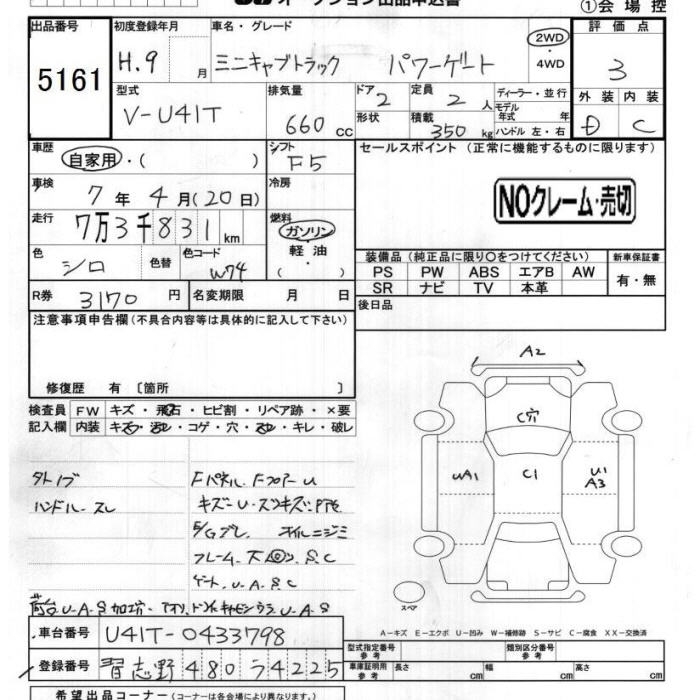 オークション出品申込書
①会場控
出品番号 5161
初度登録年月 H.9 月
車名・グレード ミニキャブトラック パワーゲート
2WD・4WD
評価点 3
外装 D 内装 C
型式 V-U41T
排気量 660 cc
ドア 2
形状
定員 2 人
積載 350 kg
ディーラー・並行
モデル年式 年
ハンドル 左・右
車歴 自家用・( )
シフト F5
セールスポイント (正常に機能するものに限ります)
車検 7年4月(20日)
冷房
NOクレーム・売切
走行 7万3千831km
燃料 ガソリン・軽油・( )
色 シロ 色替
色コード W74
装備品(純正品に限り○をつけてください)
新車保証書
PS PW ABS エアB AW
有・無
SR ナビ TV 本革
R券 3170円
名変期限 月 日
後日品
注意事項申告欄(不具合内容等は具体的に記入して下さい)
修復歴 有 〔箇所 〕
検査員記入欄
FW キズ・飛石・ヒビ割・リペア跡・×要
内装 コゲ・穴・キレ・破レ
A2
C穴
UA1 C1 U1 A3
スペア
タトノブ
ハンドル、スレ
Fパネル、Fフロアー U
フレーム、
ゲート、U.A.S.C
U.A.S
A-キズ E-エクボ U-凹み W-補修跡 S-サビ C-腐食 XX-交換済
車台番号 U41T-0433798
型式指定番号 参考
類別区分番号 参考
登録番号 習志野 480 ラ 4225
車庫証明用 参考 長さ cm 幅 cm 高さ cm
希望出品コーナー(コーナーは各会場により異なります)